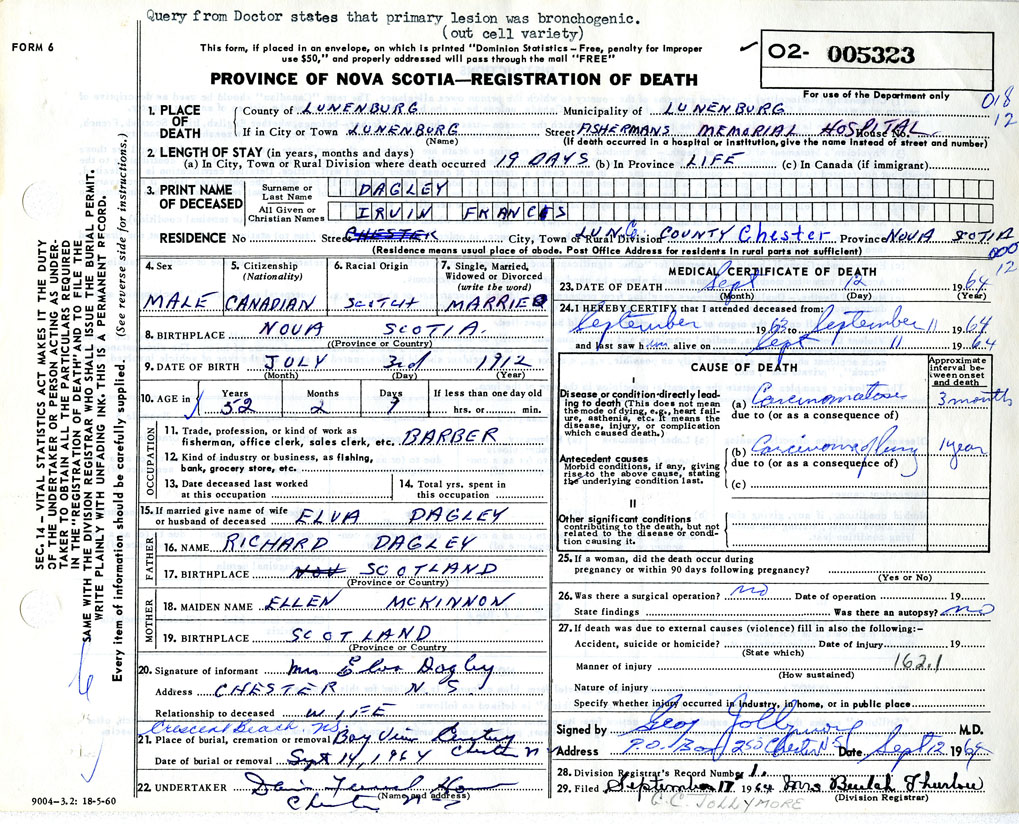 Query from Doctor states that primary lesion was bronchogenic.
(out cell variety)
FORM 6
This form, if placed in an envelope, on which is printed "Dominion Statistics – Free, penalty for improper
use $50," and properly addressed will pass through the mail "FREE"
PROVINCE OF NOVA SCOTIA—REGISTRATION OF DEATH
02- 005323
For use of the Department only
018
12
1. PLACE OF DEATH
County of LUNENBURG Municipality of LUNENBURG
If in City or Town LUNENBURG Street FISHERMANS MEMORIAL HOSPITAL House No.
(Name) (If death occurred in a hospital or institution, give the name instead of street and number)
2. LENGTH OF STAY (in years, months and days)
(a) In City, Town or Rural Division where death occurred 19 DAYS (b) In Province LIFE (c) In Canada (if immigrant)
3. PRINT NAME OF DECEASED
Surname or Last Name DAGLEY
All Given or Christian Names IRVIN FRANCIS
RESIDENCE No Street CHESTER City, Town or Rural Division LUN. COUNTY Chester Province NOVA SCOTIA
(Residence means usual place of abode. Post Office Address for residents in rural parts not sufficient)
000
12
4. Sex MALE
5. Citizenship (Nationality) CANADIAN
6. Racial Origin SCOTCH
7. Single, Married, Widowed or Divorced (write the word) MARRIED
8. BIRTHPLACE NOVA SCOTIA.
(Province or Country)
9. DATE OF BIRTH JULY 3rd 1912
(Month) (Day) (Year)
10. AGE in Years Months Days If less than one day old
52 2 9 hrs. or min.
OCCUPATION
11. Trade, profession, or kind of work as
fisherman, office clerk, sales clerk, etc. BARBER
12. Kind of industry or business, as fishing,
bank, grocery store, etc.
13. Date deceased last worked
at this occupation
14. Total yrs. spent in
this occupation
15. If married give name of wife
or husband of deceased ELVA DAGLEY
FATHER
16. NAME RICHARD DAGLEY
17. BIRTHPLACE NOV SCOTLAND
(Province or Country)
MOTHER
18. MAIDEN NAME ELLEN McKINNON
19. BIRTHPLACE SCOTLAND
(Province or Country)
20. Signature of informant Mrs Elva Dagley
Address CHESTER N S
Relationship to deceased WIFE
Crescent Beach. NS
21. Place of burial, cremation or removal Bay View Cemetry Chester N
Date of burial or removal Sept 14, 1964
22. UNDERTAKER Davis Funeral Home
(Name and address)
Chester N S
9004—3.2: 18-5-60
MEDICAL CERTIFICATE OF DEATH
23. DATE OF DEATH Sept 12 1964
(Month) (Day) (Year)
24. I HEREBY CERTIFY that I attended deceased from:
September 1963 to September 11 1964
and last saw him alive on Sept 11 1964
CAUSE OF DEATH
Approximate interval between onset and death
I
Disease or condition directly leading to death (This does not mean the mode of dying, e.g., heart failure, asthenia, etc. It means the disease, injury, or complication which caused death.)
(a) Carcinomatosis 3 months
due to (or as a consequence of)
Antecedent causes
Morbid conditions, if any, giving rise to the above cause, stating the underlying condition last.
(b) Carcinoma of lung 1 year
due to (or as a consequence of)
(c)
II
Other significant conditions
contributing to the death, but not
related to the disease or condition causing it.
25. If a woman, did the death occur during
pregnancy or within 90 days following pregnancy?
(Yes or No)
26. Was there a surgical operation? no Date of operation 19
State findings Was there an autopsy? no
27. If death was due to external causes (violence) fill in also the following:–
Accident, suicide or homicide? Date of injury 19
(State which)
Manner of injury 162.1
(How sustained)
Nature of injury
Specify whether injury occurred in industry, in home, or in public place
Signed by Geo Jollymore M.D.
Address P.O. Box 250 Chester NS Date Sept 12 1964
28. Division Registrar's Record Number 1.
29. Filed September 17 1964 Mrs Beulah Thurlow
(Division Registrar)
G. C. JOLLYMORE
SEC. 14 – VITAL STATISTICS ACT MAKES IT THE DUTY
OF THE UNDERTAKER OR PERSON ACTING AS UNDER-
TAKER TO OBTAIN ALL THE PARTICULARS REQUIRED
IN THE "REGISTRATION OF DEATH" AND TO FILE THE
SAME WITH THE DIVISION REGISTRAR WHO SHALL ISSUE THE BURIAL PERMIT.
WRITE PLAINLY WITH UNFADING INK. THIS IS A PERMANENT RECORD.
Every item of information should be carefully supplied. (See reverse side for instructions.)